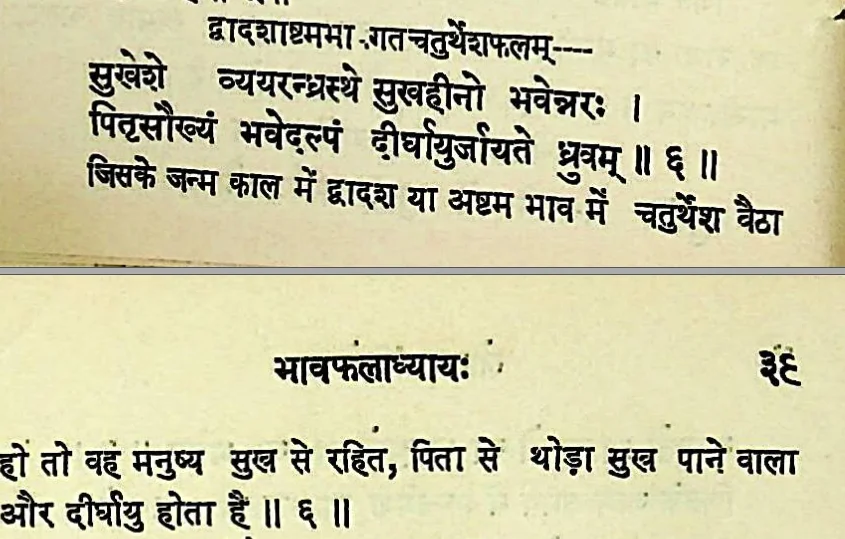 द्वादशाष्टमभा गतचतुर्थेशफलम्----
सुखेशे व्ययरन्ध्रस्थे सुखहीनो भवेन्नरः ।
पितृसौख्यं भवेदल्पं दीर्घायुर्जायते ध्रुवम् ॥ ६ ॥
जिसके जन्म काल में द्वादश या अष्टम भाव में चतुर्थेश वैठा
भावफलाध्यायः ३९
हो तो वह मनुष्य सुख से रहित, पिता से थोड़ा सुख पाने वाला
और दीर्घायु होता है ॥ ६ ॥